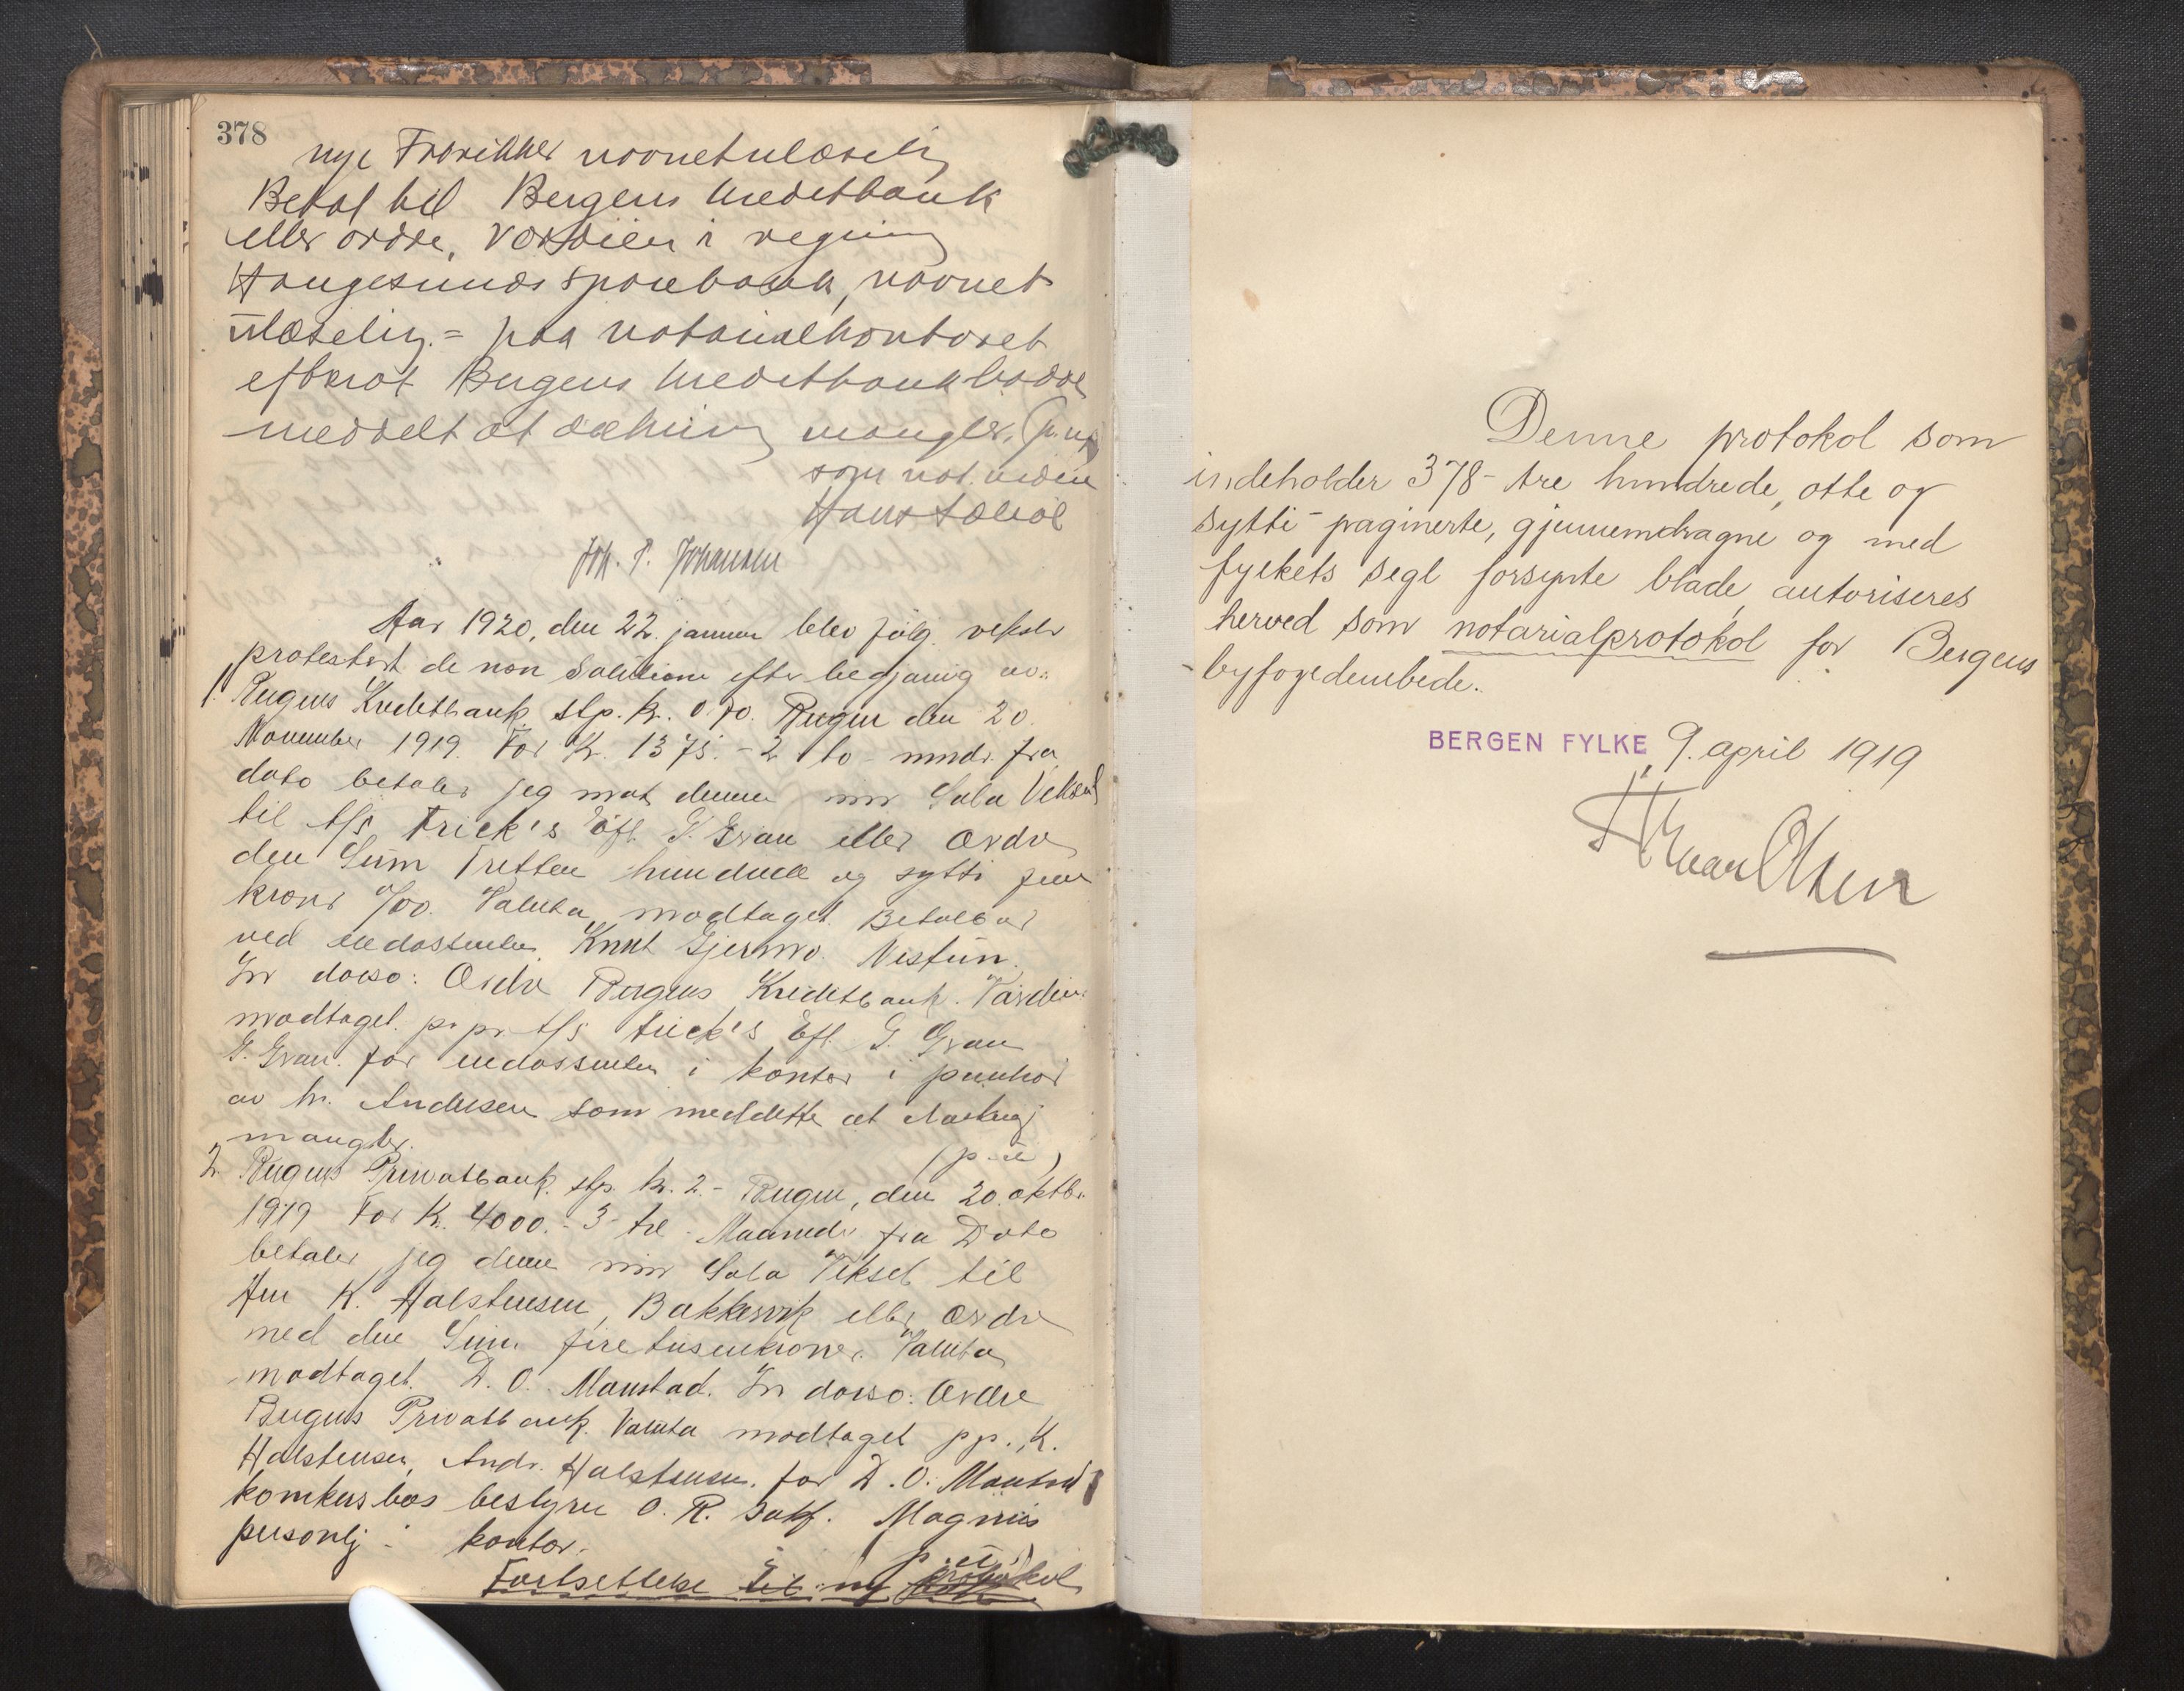 378
nye Fabrikker navnet ulæselig
Betal til Bergens Kreditbank
eller ordre, Værdien i regning
Haugesunds Sparebank, navnet
ulæselig = paa notarialkontoret
efterat Bergens Kreditbank hadde
meddelt at dækning mangler.
som not. vidne
Hans
Joh. P. Johansen
Aar 1920, den 22. januar blev følg. veksler
protestert de non Solutione efter begjæring av:
1. Bergens Kreditbank stp. kr. 0.70. Bergen den 20.
November 1919. For Kr. 1375.- 2 to mndr. fra
dato betaler jeg mot denne min Sola Veksel
til A/S Frick's Eft. G. Gran eller Ordre
den Sum Tretten hundrede og sytti fem
kroner 0/00. Valuta modtaget. Betalbar
ved endossenten. Knut Gjermo. Nestun.
In dorso: Ordre Bergens Kreditbank. Værdien
modtaget. pr. pr. A/S Frick's Eft. G. Gran
G. Gran. for endossenten i kontor i paahør
av hr. Andersen som meddelte at dækning
mangler.
2. Bergens Privatbank. stp. kr. 2.- Bergen, den 20. oktbr.
1919 For Kr. 4000.- 3 - tre - Maaneder fra Dato
betaler jeg denne min Sola Veksel til
Herr K. Halstensen, Bekkervik eller Ordre
med den Sum fire tusen kroner. Valuta
modtaget. D. O. Monstad. In dorso: Ordre
Bergens Privatbank. Valuta modtaget pp. K.
Halstensen, Andr. Halstensen. for D. O. Monstad
konkursbos bestyrer O. R. Sakf. Magnus
personlig i kontor.
Fortsettelse til ny protokol
Denne protokol som
indeholder 378 - tre hundrede, otte og
sytti - paginerte, gjennemdragne og med
fylkets segl forsynte blade, autoriseres
herved som notarialprotokol for Bergens
byfogedembede.
BERGEN FYLKE, 9. april 1919